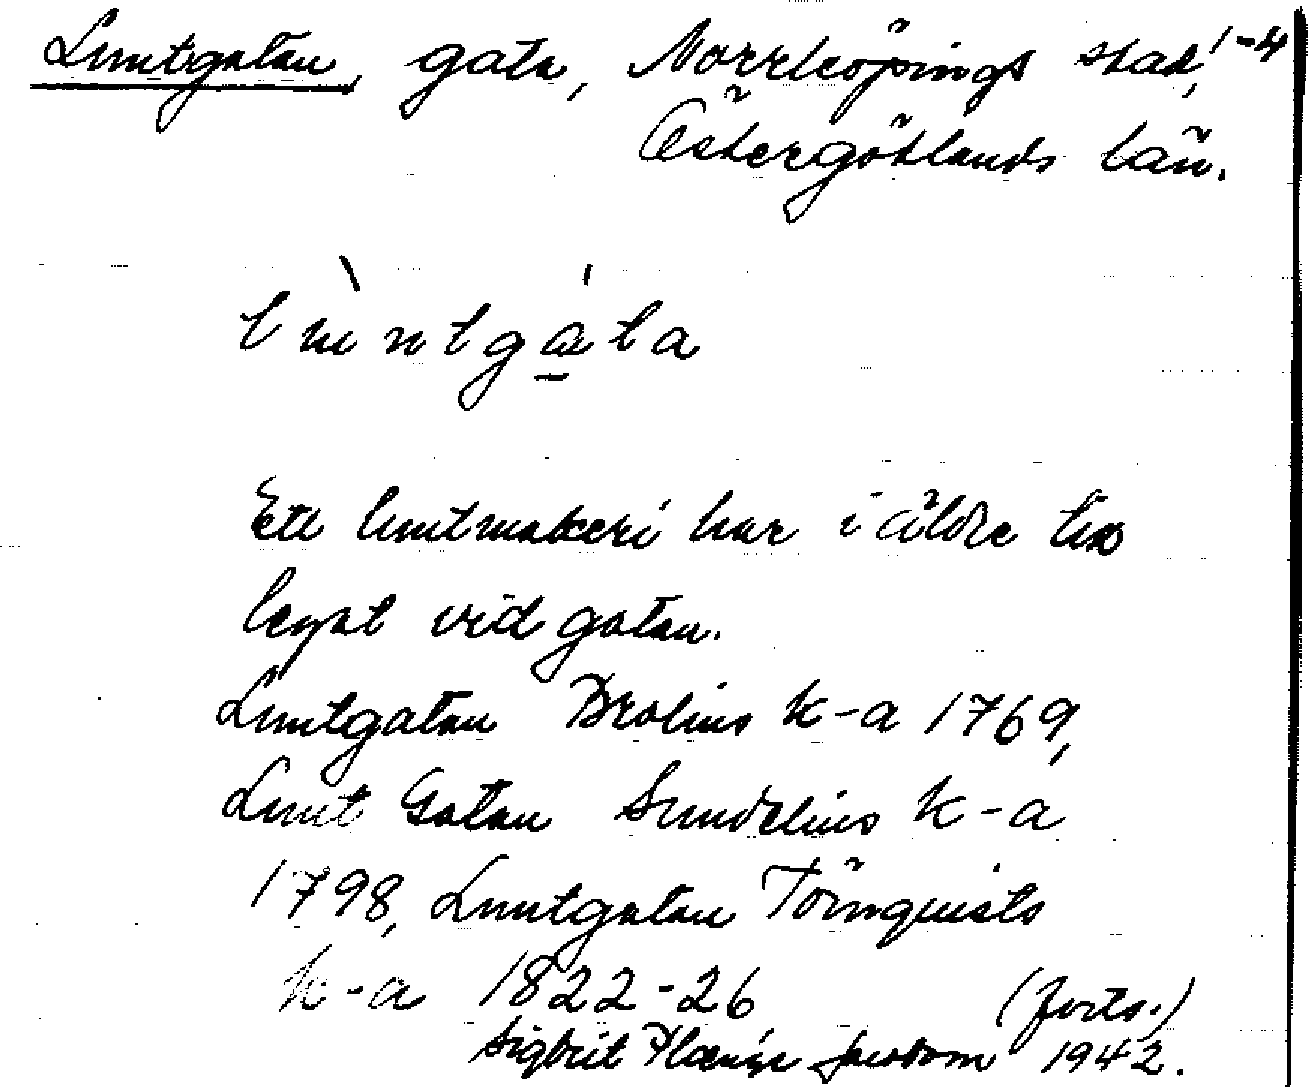 Luntgatan, gata, Norrköpings stad, 1-4
Östergötlands län.
lùntgáta
Ett luntmakeri har i äldre tid
legat vid gatan.
Luntgatan Brolins k-a 1769,
Lunt Gatan Sundelius k-a
1798, Luntgatan Törnquists
k-a 1822-26 (forts.)
Sigbrit Plænge Jacobson 1942.